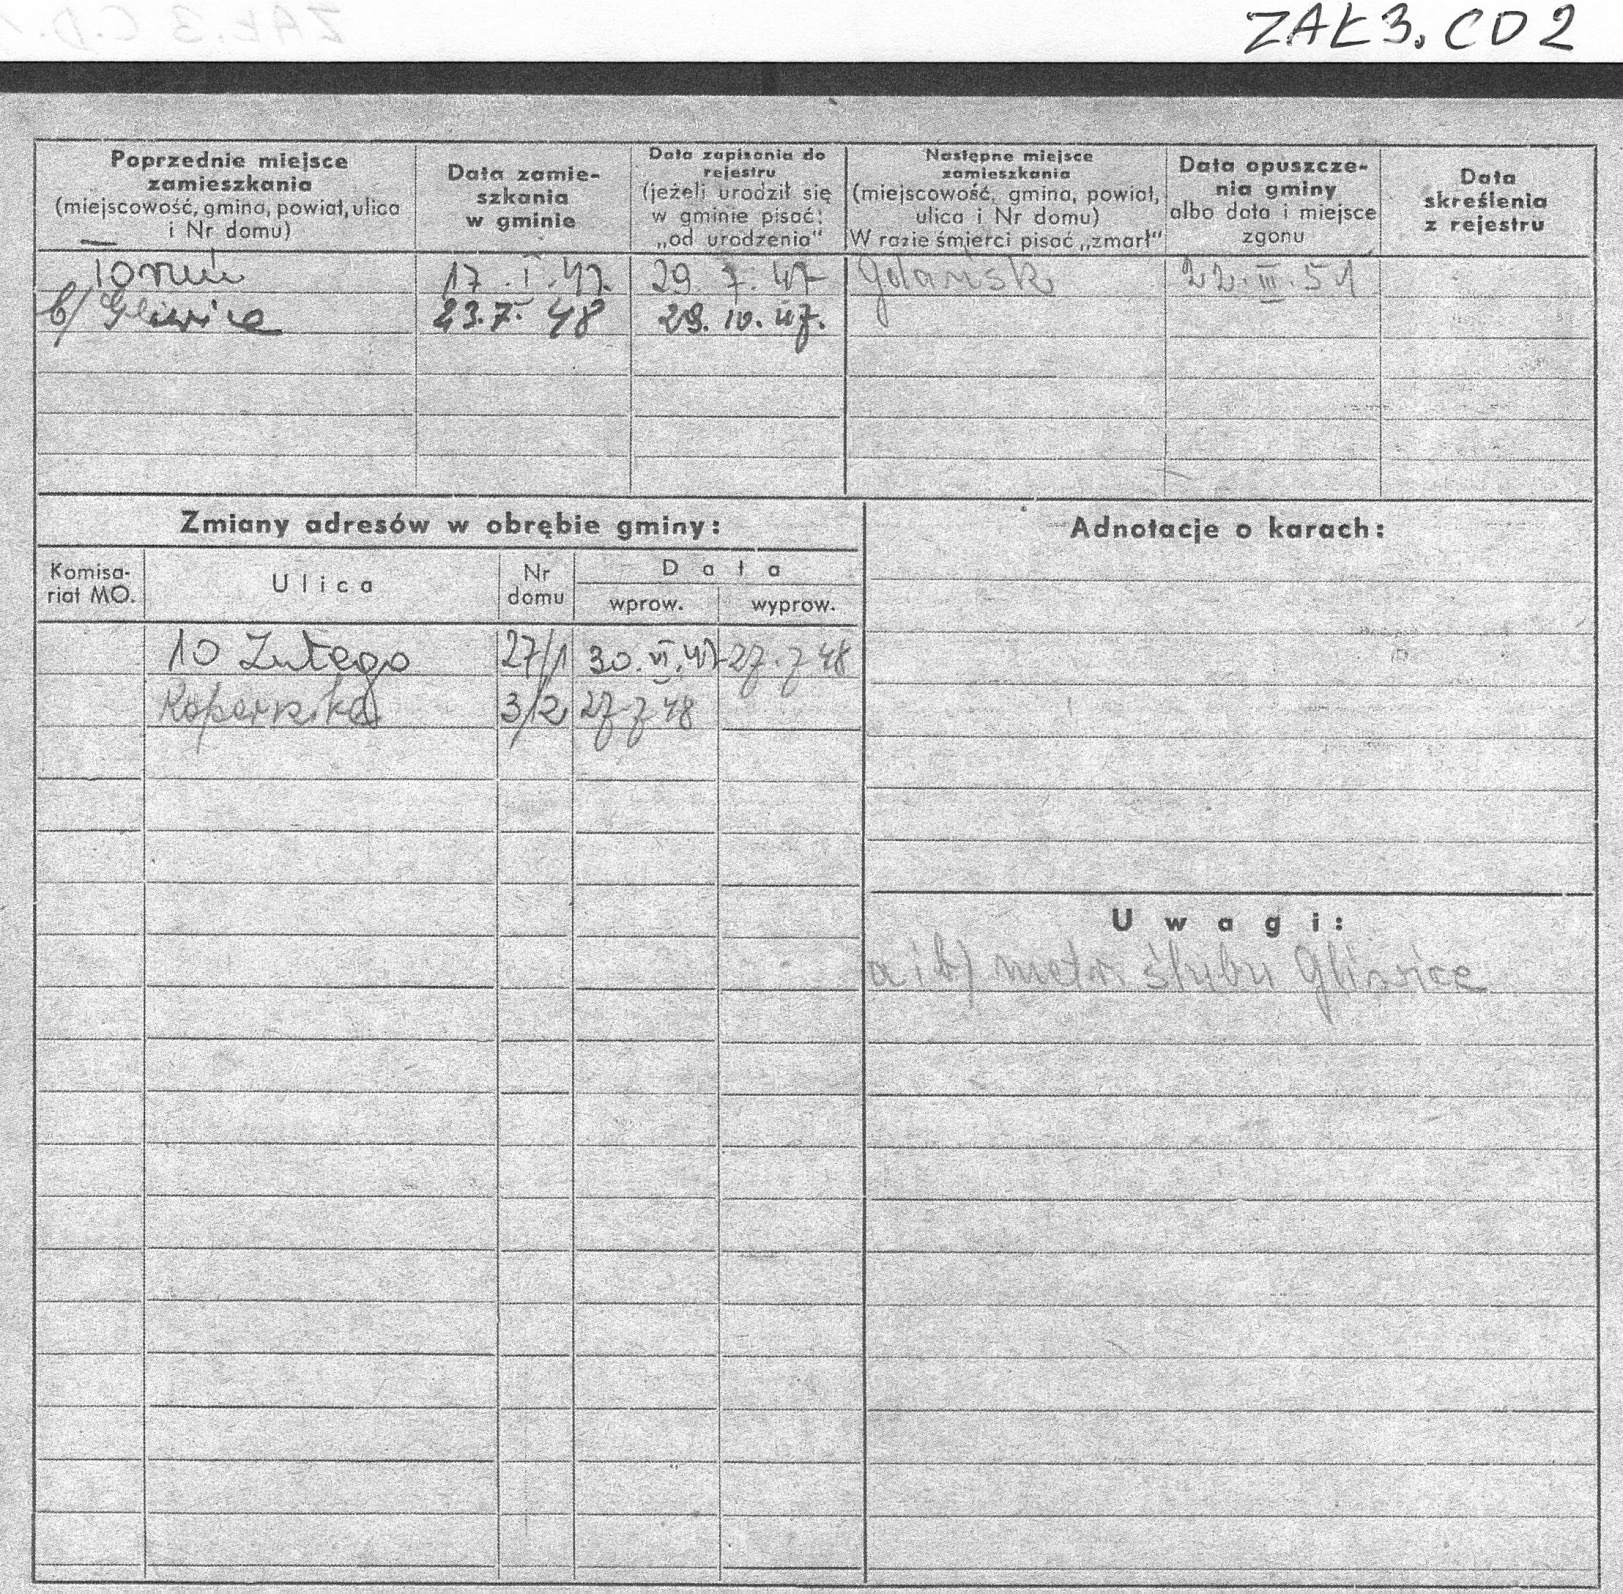 ZAŁ 3. CD 2
Poprzednie miejsce zamieszkania (miejscowość, gmina, powiat, ulica i Nr domu)
Data zamie-szkania w gminie
Data zapisania do rejestru (jeżeli urodził się w gminie pisać: „od urodzenia“
Następne miejsce zamieszkania (miejscowość, gmina, powiat, ulica i Nr domu) W razie śmierci pisać „zmarł“
Data opuszcze-nia gminy albo data i miejsce zgonu
Data skreślenia z rejestru
Toruń 17. I. 47. 29. 7. 47 Gdańsk 22. III. 51
b/ Gliwice 23. 7. 48 29. 10. 47.
Zmiany adresów w obrębie gminy:
Komisa-riat MO.
Ulica
Nr domu
Data
wprow. wyprow.
10 Lutego 27/1 30. VI. 47 27. 7 48
Kopernika 3/2 27 7 48
Adnotacje o karach:
Uwagi:
a i b) metr. ślubu Gliwice